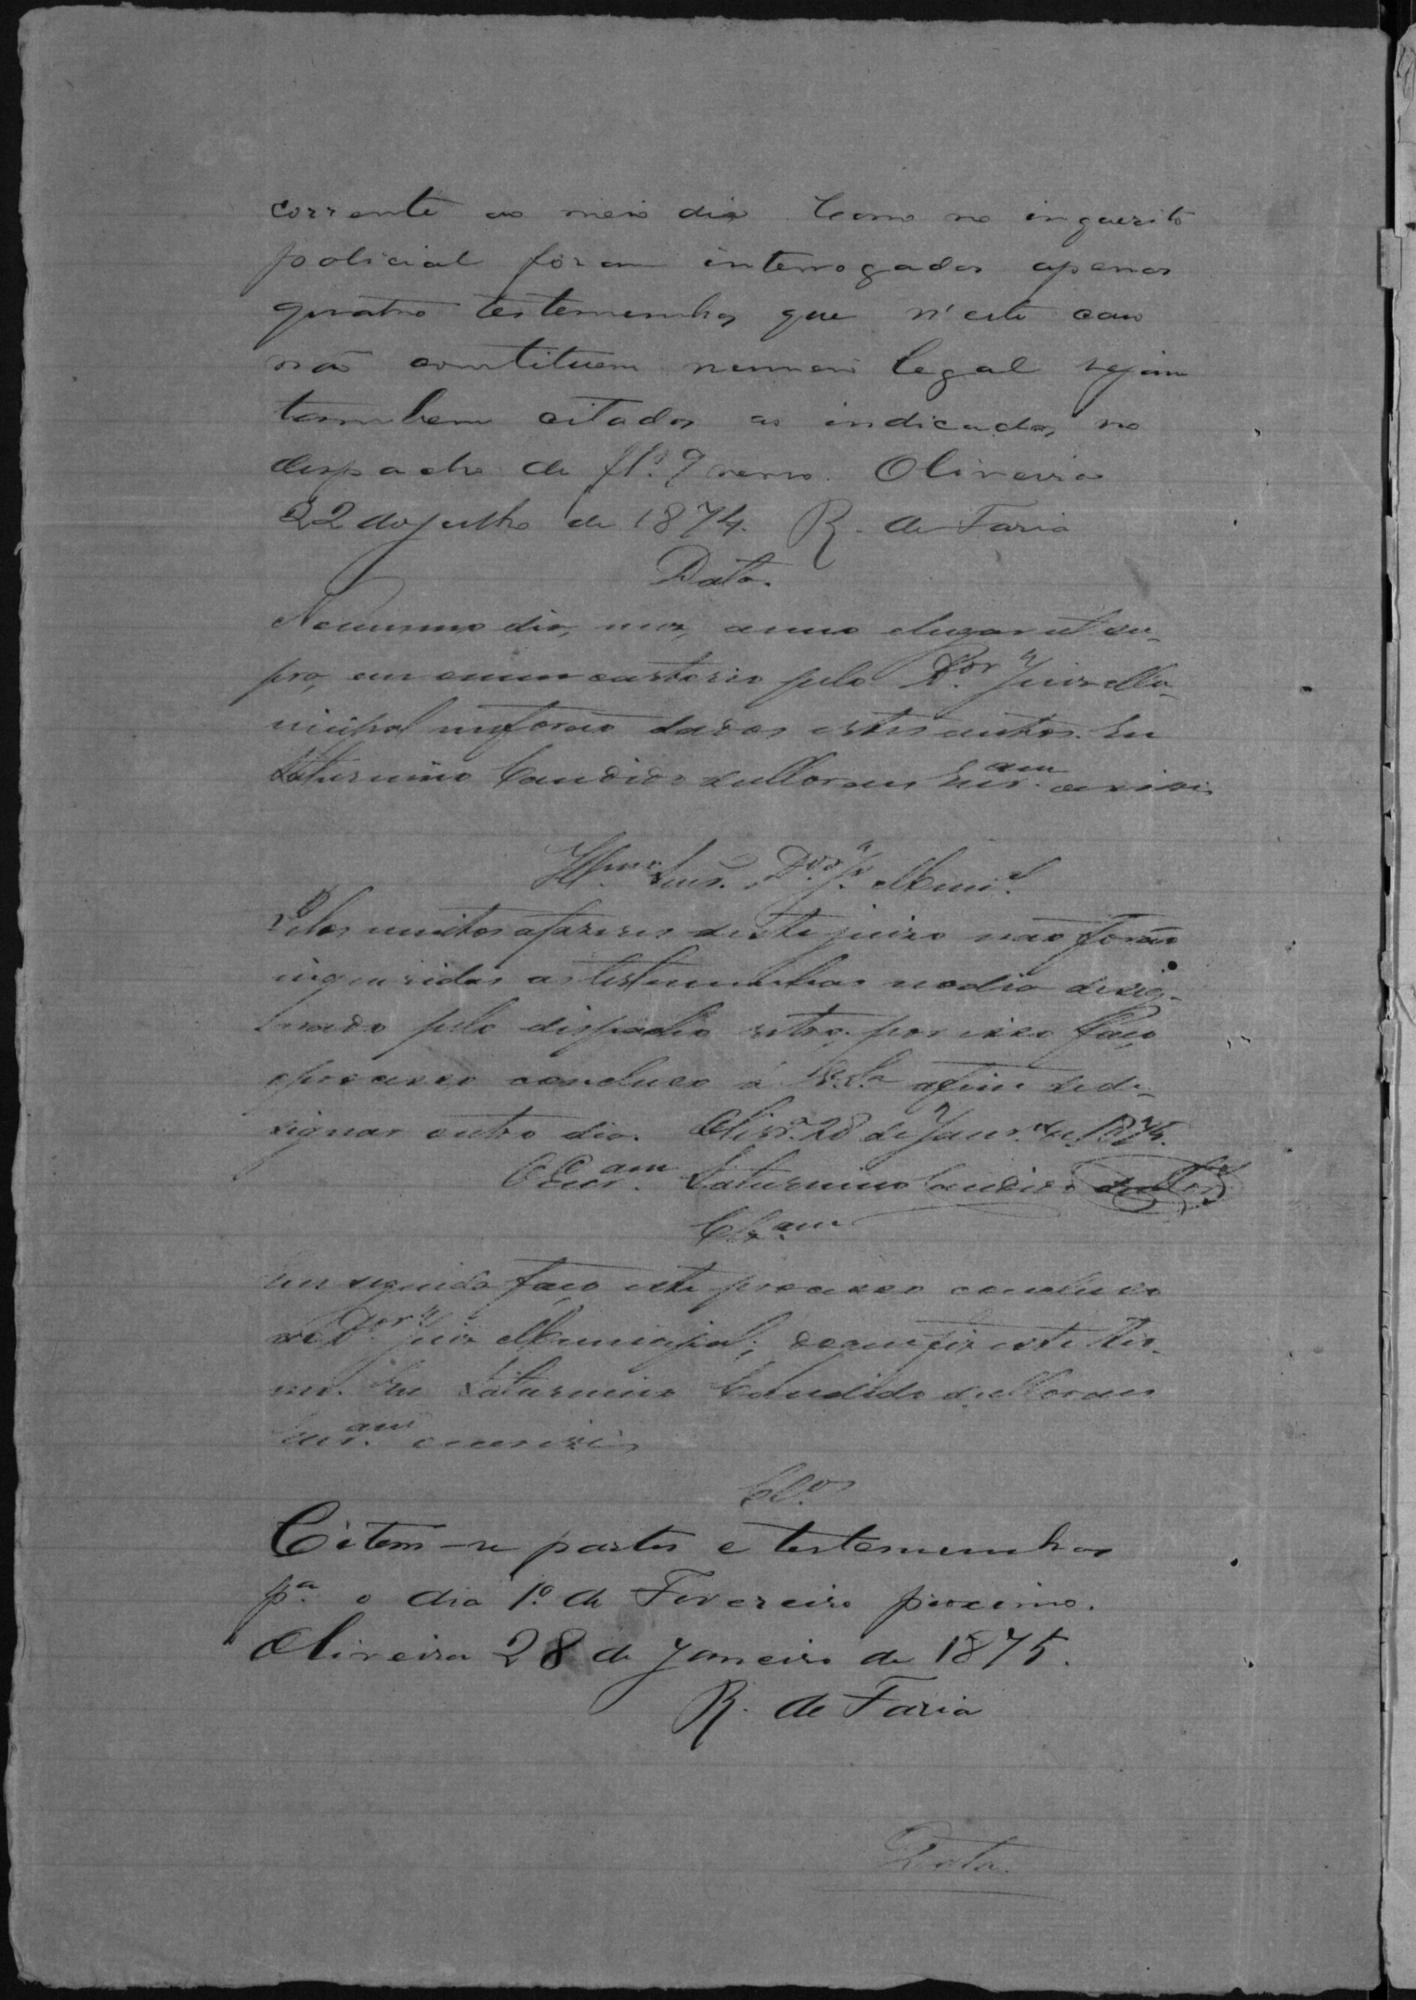 corrente ao meio dia. Como no inquerito
policial foram interrogados apenas
quatro testemunhas que n'este caso
não constituem numero legal sejam
tambem citados as indicadas no
despacho de fl.s 9 verso. Oliveira
22 de julho de 1874. R. de Faria
Data.
No mesmo dia, mez, anno e lugar ut su-
pra, em o meu cartorio pelo D.or Juiz Mu-
nicipal me forão dados estes autos. Eu
Saturnino Candido de Moraes Escr.am escrivi
Ill.mo Snr. D.or J. Munic.l
Pelos muitos afazeres deste juizo não forão
inqueridas as testemunhas no dia desig-
nado pelo dispacho retro, por isso faço
o processo concluso á V.S.a afim de de-
signar outro dia. Oliv.ra 28 de Janr.o de 1875.
O Escr.am Saturnino Candido de Mor.es
Clz.am
Em seguida faço este processo concluso
ao D.or Juiz Municipal; do que fiz este ter-
mo. Eu Saturnino Candido de Moraes
Escr.am o escrivi
Cl.os
Citem-se partes e testemunhas
p.a o dia 1.o de Fevereiro proximo.
Oliveira 28 de Janeiro de 1875.
R. de Faria
Data.